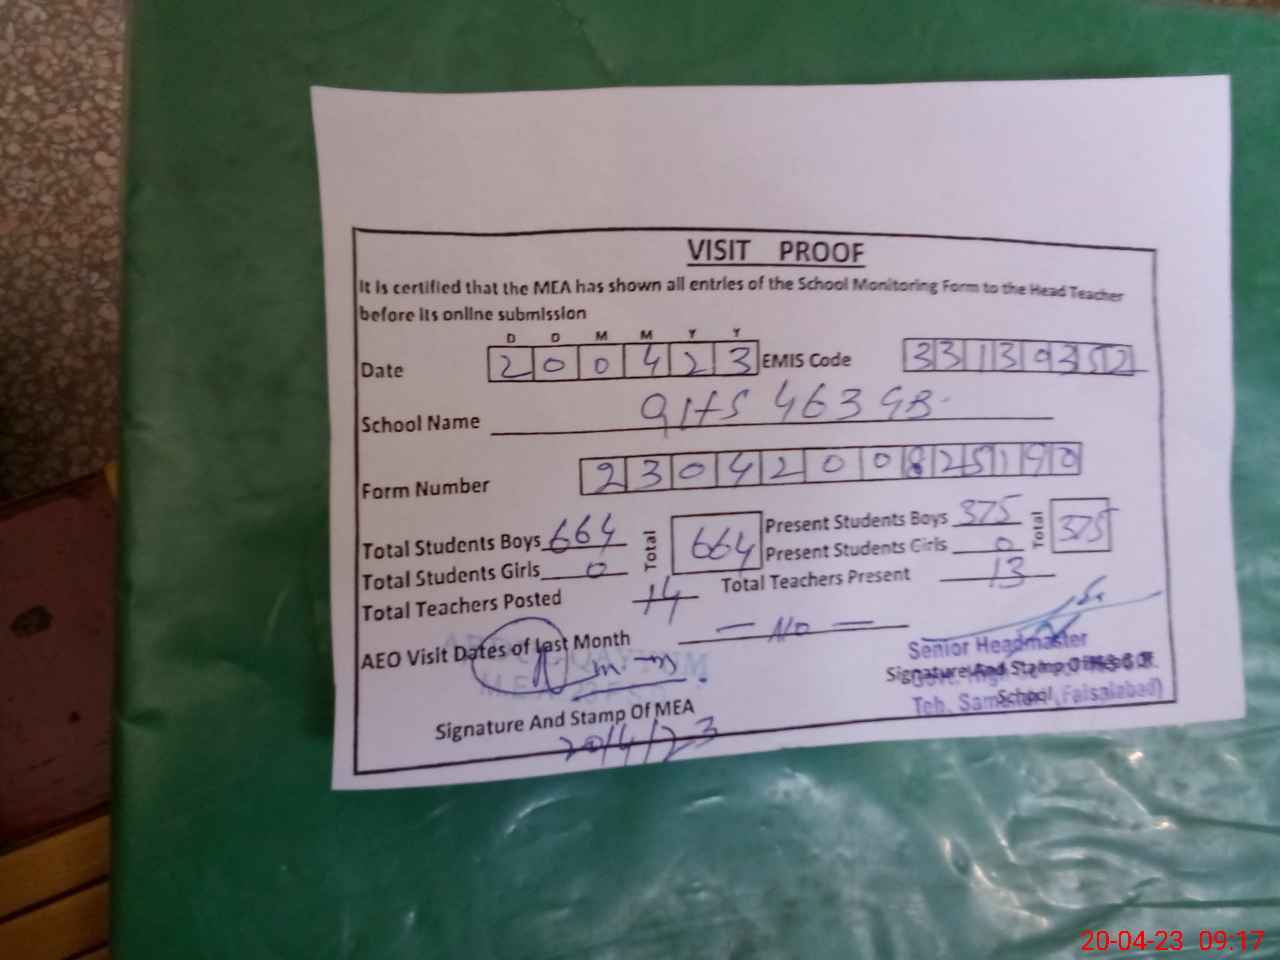 VISIT PROOF
It is certified that the MEA has shown all entries of the School Monitoring Form to the Head Teacher
before its online submission
D D M M Y Y
Date 2 0 0 4 2 3 EMIS Code 3 3 1 3 0 3 5 2
School Name GHS 463 GB
Form Number 2 3 0 4 2 0 0 8 2 5 1 9 0
Total Students Boys 664 Total 664 Present Students Boys 375 Total 375
Total Students Girls 0 Present Students Girls 0
Total Teachers Posted 14 Total Teachers Present 13
AEO Visit Dates of last Month — No —
Senior Headmaster
Signature And Stamp Of
School
Teh. Samundri (Faisalabad)
Signature And Stamp Of MEA
20/4/23
20-04-23 09:17